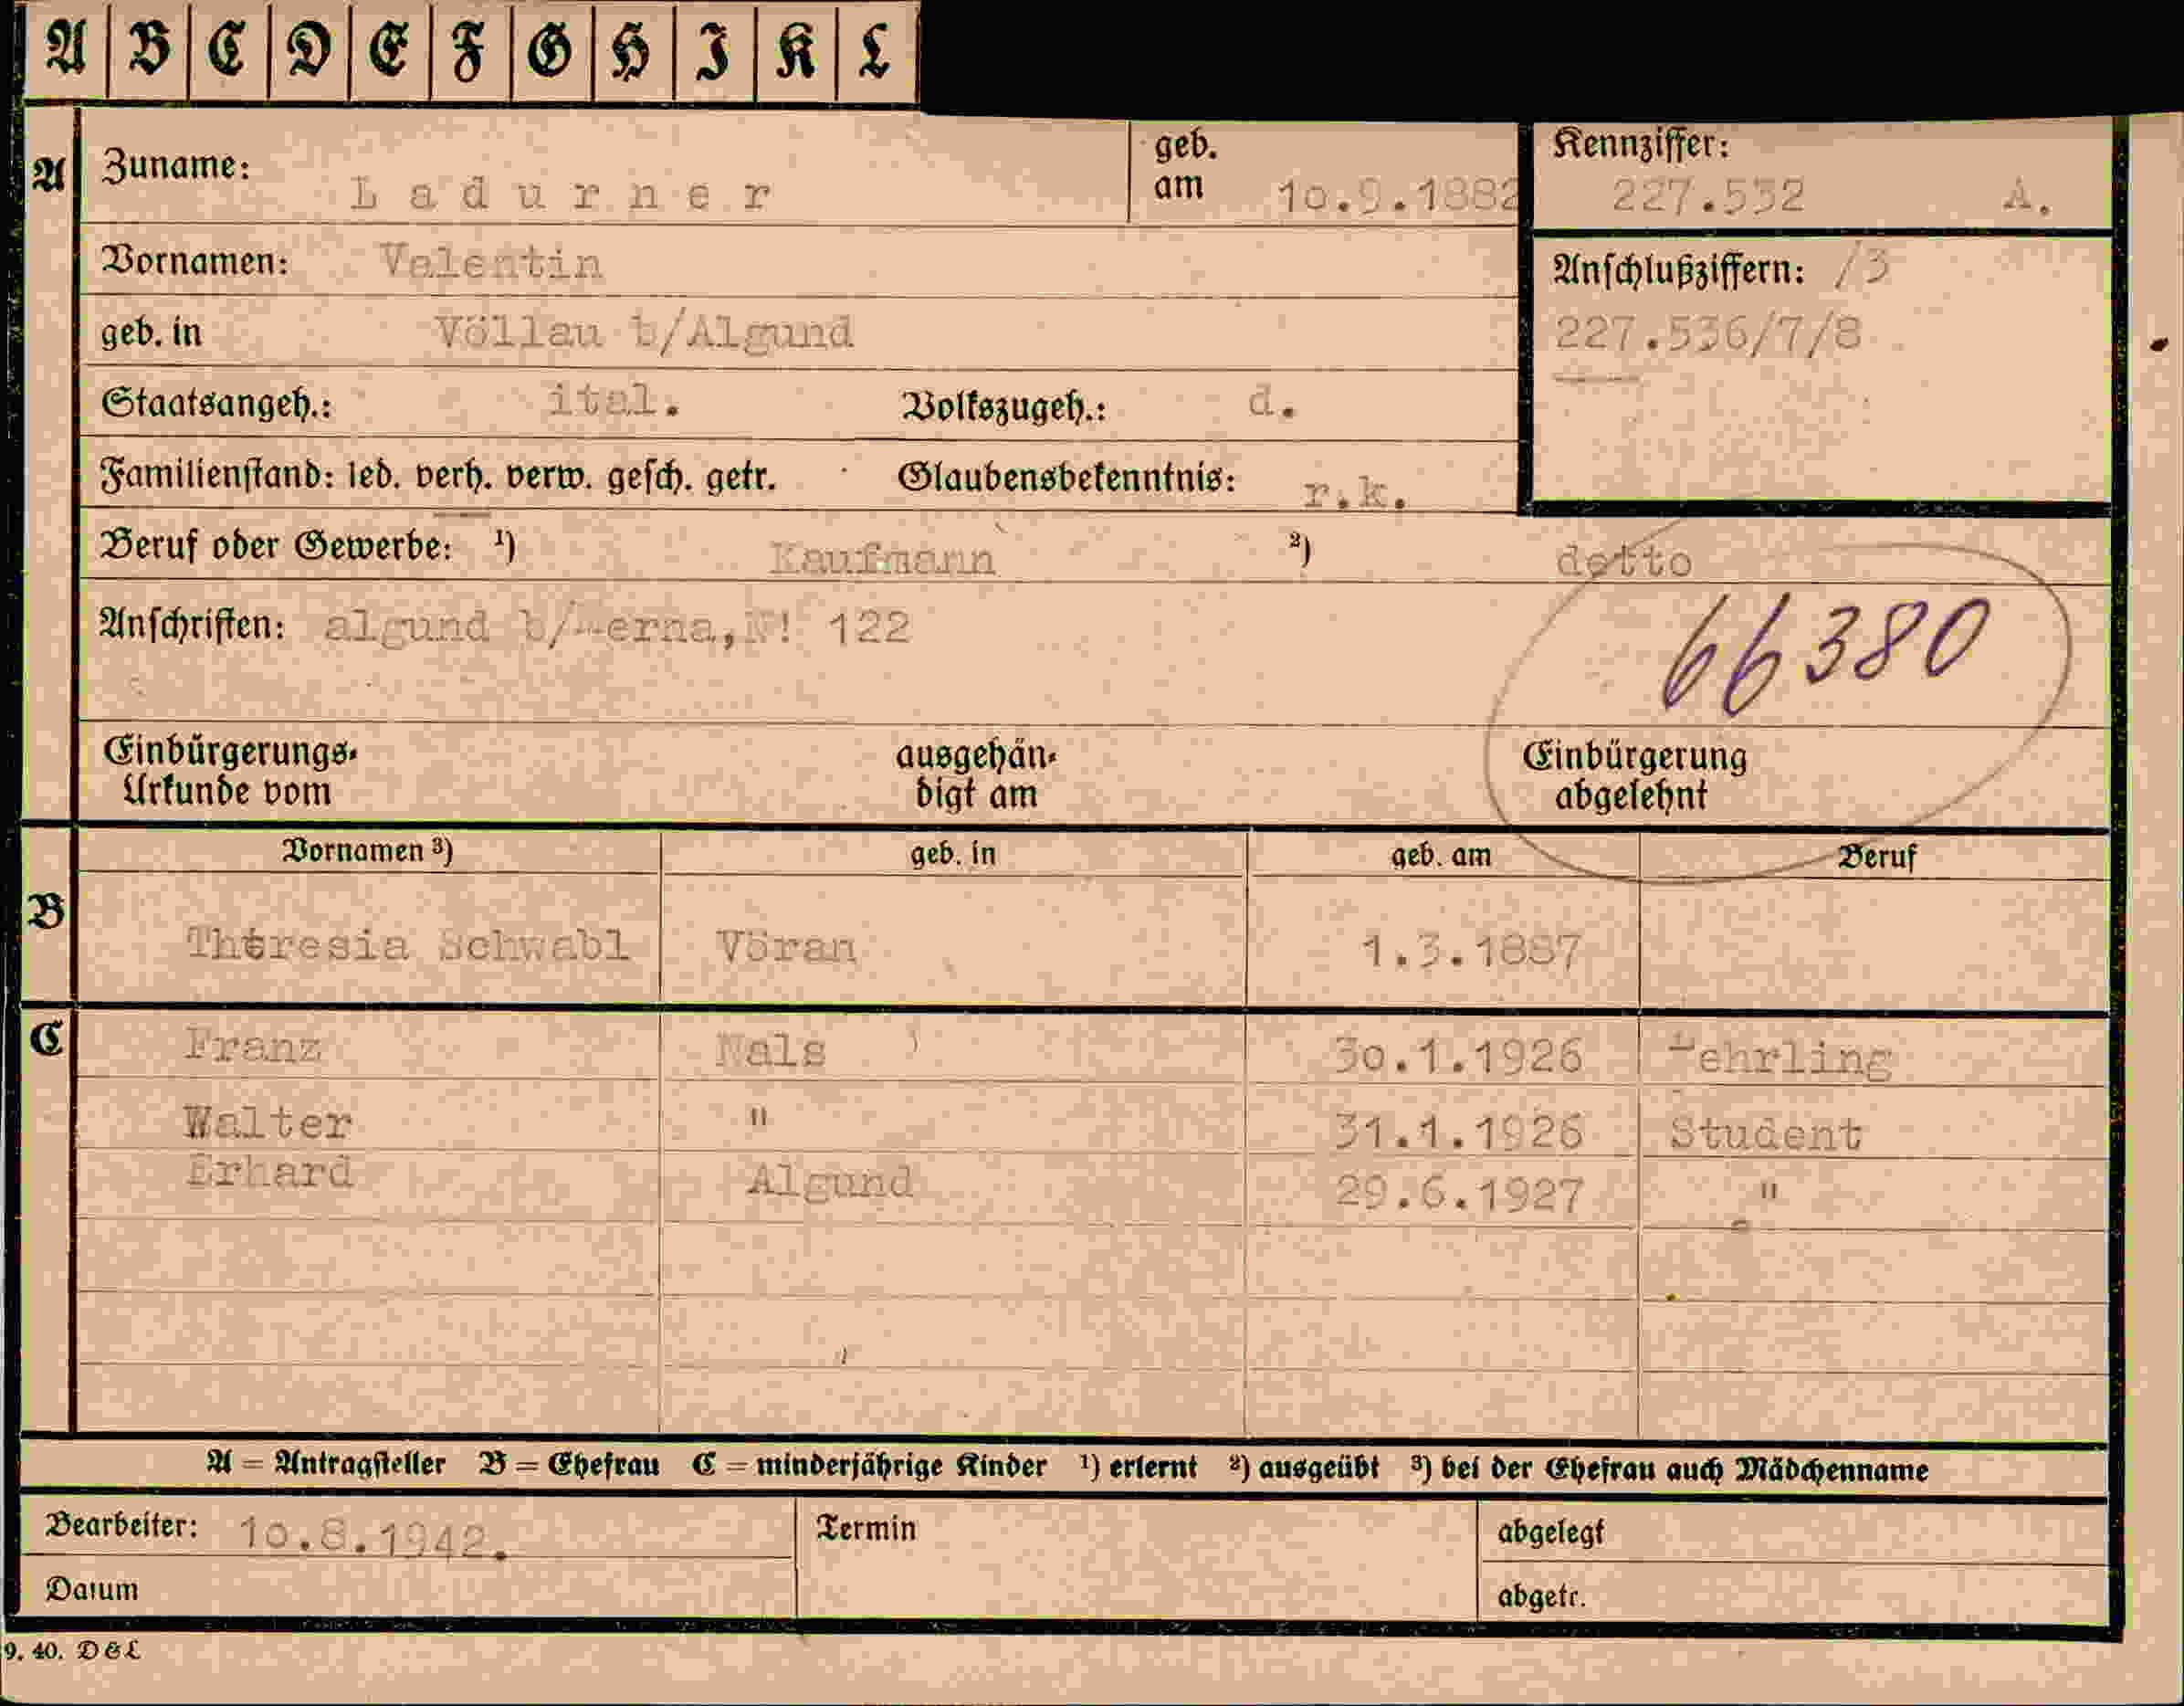 A B C D E F G H I K L
A Zuname: Ladurner geb. am 10.9.1882 Kennziffer: 227.532 A.
Vornamen: Valentin
Anschlußziffern: /3
geb. in Völlau b/Algund 227.536/7/8
Staatsangeh.: ital. Volkszugeh.: d.
Familienstand: led. verh. verw. gesch. getr. Glaubensbekenntnis: r.k.
Beruf oder Gewerbe: ¹) Kaufmann ²) detto
Anschriften: algund b/Merna, N! 122
66380
Einbürgerungs-Urkunde vom ausgehändigt am Einbürgerung abgelehnt
Vornamen ³) geb. in geb. am Beruf
B Theresia Schwabl Vöran 1.3.1887
C Franz Nals 30.1.1926 Lehrling
Walter " 31.1.1926 Student
Erhard Algund 29.6.1927 "
A = Antragsteller B = Ehefrau C = minderjährige Kinder ¹) erlernt ²) ausgeübt ³) bei der Ehefrau auch Mädchenname
Bearbeiter: 10.8.1942. Termin abgelegt
Datum abgetr.
9. 40. D&L